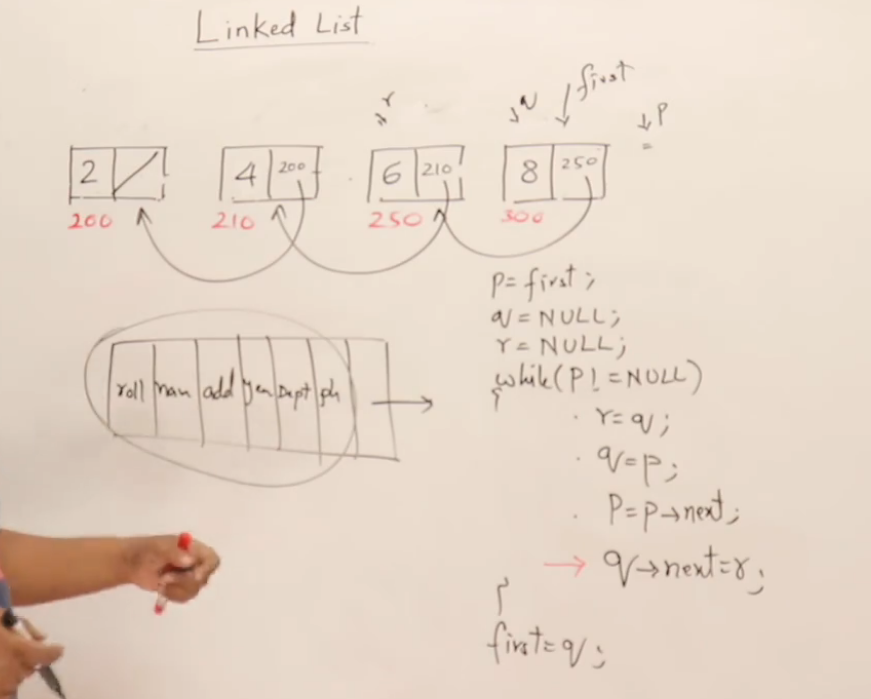 Linked List
r q first p
2 4 200 6 210 8 250
200 210 250 300
p= first;
q= NULL;
r= NULL;
while(P!=NULL)
{
r=q;
q=p;
P=p→next;
→ q→next=r;
}
first=q;
roll nam add gen Dept ph